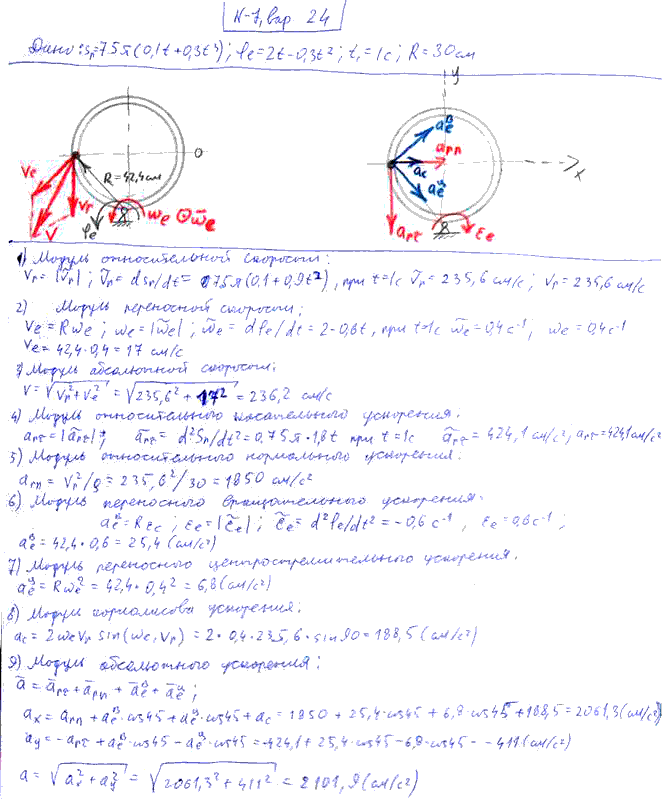 К-7, вар 24
Дано: Sr=75π(0,1t+0,3t³); φe=2t-0,3t²; t₁=1c; R=30см
y
Ve
Vr
V
R=42,4см
O
φe
ωe ⊙ω̄e
aeᴮ
arn
ac
aeᶣ
arτ
εe
x
1) Модуль относительной скорости:
Vr=|Ṽr|; Ṽr=dSr/dt=75π(0,1+0,9t²), при t=1c Ṽr=235,6 см/с; Vr=235,6 см/с
2) Модуль переносной скорости;
Ve=Rωe; ωe=|ω̃e|; ω̃e=dφe/dt=2-0,6t, при t=1c ω̃e=0,4c⁻¹; ωe=0,4c⁻¹
Ve=42,4·0,4=17 см/с
3) Модуль абсолютной скорости;
V=√Vr²+Ve²=√235,6²+17²=236,2 см/с
4) Модуль относительного касательного ускорения.
arτ=|ãrτ|; ãrτ=d²Sr/dt²=0,75π·1,8t при t=1c ãrτ=424,1см/с², arτ=424,1см/с²
5) Модуль относительного нормального ускорения.
arn=Vr²/ρ=235,6²/30=1850 см/с²
6) Модуль переносного вращательного ускорения.
aeᴮ=Rεe; εe=|ε̃e|; ε̃e=d²φe/dt²=-0,6c⁻¹, εe=0,6c⁻¹;
aeᴮ=42,4·0,6=25,4(см/с²)
7) Модуль переносного центростремительного ускорения.
aeᶣ=Rωe²=42,4·0,4²=6,8(см/с²)
8) Модуль кориолисова ускорения;
ac=2ωeVr sin(ωe,Vr)=2·0,4·235,6·sin90=188,5(см/с²)
9) Модуль абсолютного ускорения;
ā=ārτ+ārn+āeᴮ+āeᶣ;
ax=arn+aeᴮ·cos45+aeᶣ·cos45+ac=1850+25,4·cos45+6,8·cos45+188,5=2061,3(см/с²)
ay=-arτ+aeᴮ·cos45-aeᶣ·cos45=-424,1+25,4·cos45-6,8·cos45=-411(см/с²)
a=√ax²+ay²=√2061,3²+411²=2101,9(см/с²)